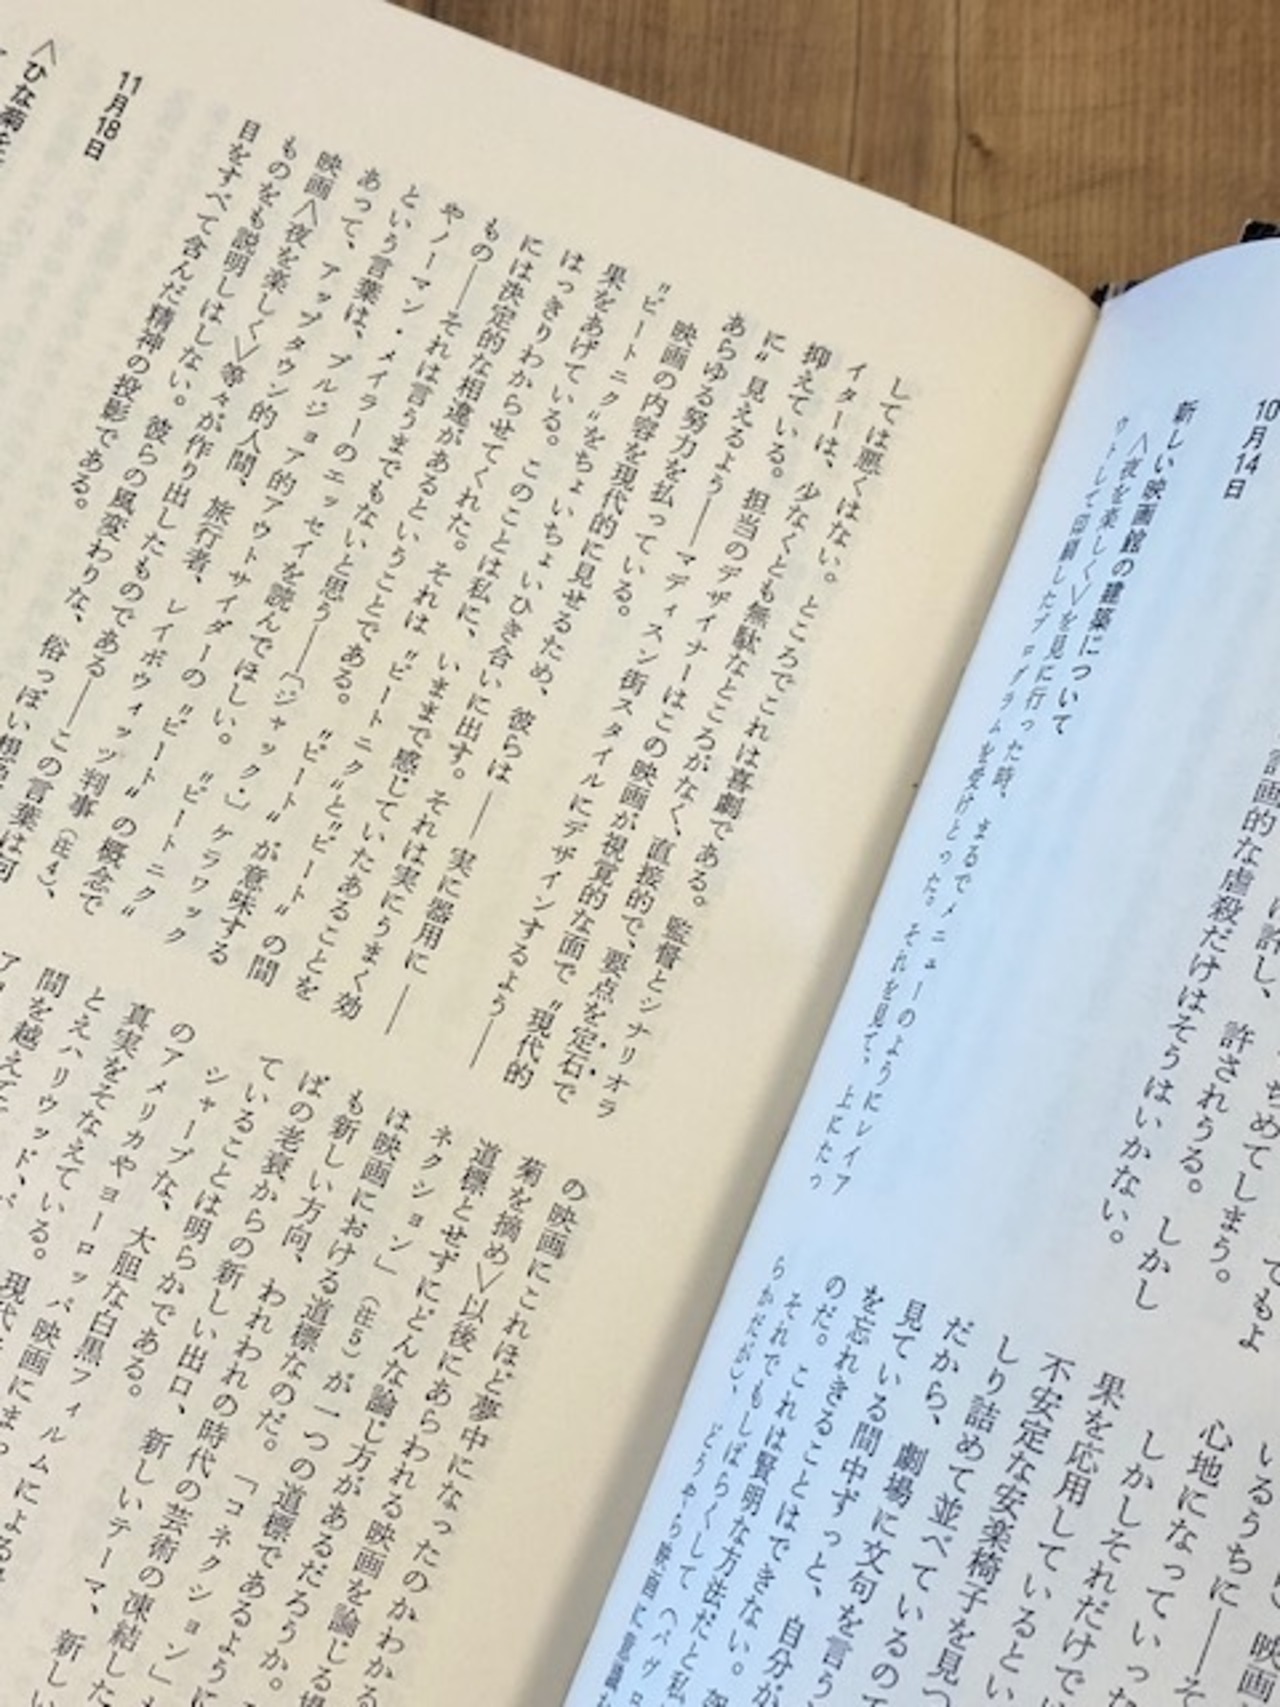 10月14日
新しい映画館の建築について
〈夜を楽しく〉を見に行った時、まるでメニューのようにレイア
ウトして印刷したプログラムを受けとった。それを見て、上にたっ
許し、許されうる。しかし
計画的な虐殺だけはそうはいかない。
めてしまう。
でもよ
いるうちに――そ
心地になっていった
しかしそれだけでは
果を応用しているとい
不安定な安楽椅子を見つ
しり詰めて並べているので
だから、劇場に文句を言う
見ている間中ずっと、自分が
を忘れきることはできない。
のだ。これは賢明な方法だと私
それでもしばらくして
らかだが)、どうやら映画に意識
しては悪くはない。ところでこれは喜劇である。監督とシナリオラ
イターは、少なくとも無駄なところがなく、直接的で、要点を定石で
抑えている。担当のデザイナーはこの映画が視覚的な面で〝現代的
に〟見えるよう――マディスン街スタイルにデザインするよう――
あらゆる努力を払っている。
映画の内容を現代的に見せるため、彼らは――実に器用に――
〝ビートニク〟をちょいちょいひき合いに出す。それは実にうまく効
果をあげている。このことは私に、いままで感じていたあることを
はっきりわからせてくれた。それは〝ビートニク〟と〝ビート〟の間
には決定的な相違があるということである。〝ビート〟が意味する
もの――それは言うまでもないと思う――〔ジャック・〕ケラワック
やノーマン・メイラーのエッセイを読んでほしい。〝ビートニク〟
という言葉は、ブルジョア的アウトサイダーの〝ビート〟の概念で
あって、アップタウン的人間、旅行者、レイボウィッツ判事(注4)、
映画〈夜を楽しく〉等々が作り出したものである――この言葉は何
ものをも説明しはしない。彼らの風変わりな、俗っぽい想像
目をすべて含んだ精神の投影である。
11月18日
〈ひな菊を
の映画にこれほど夢中になったのかわかる
菊を摘め〉以後にあらわれる映画を論じる場
道標とせずにどんな論じ方があるだろうか。
ネクション」(注5)が一つの道標であるように
は映画における道標なのだ。「コネクション」
も新しい方向、われわれの時代の芸術の凍結した
ばの老衰からの新しい出口、新しいテーマ、新し
ていることは明らかである。
シャープな、大胆な白黒フィルムによる
のアメリカやヨーロッパ映画にまっ
真実をそなえている。現代
とえハリウッド、
間を越えて